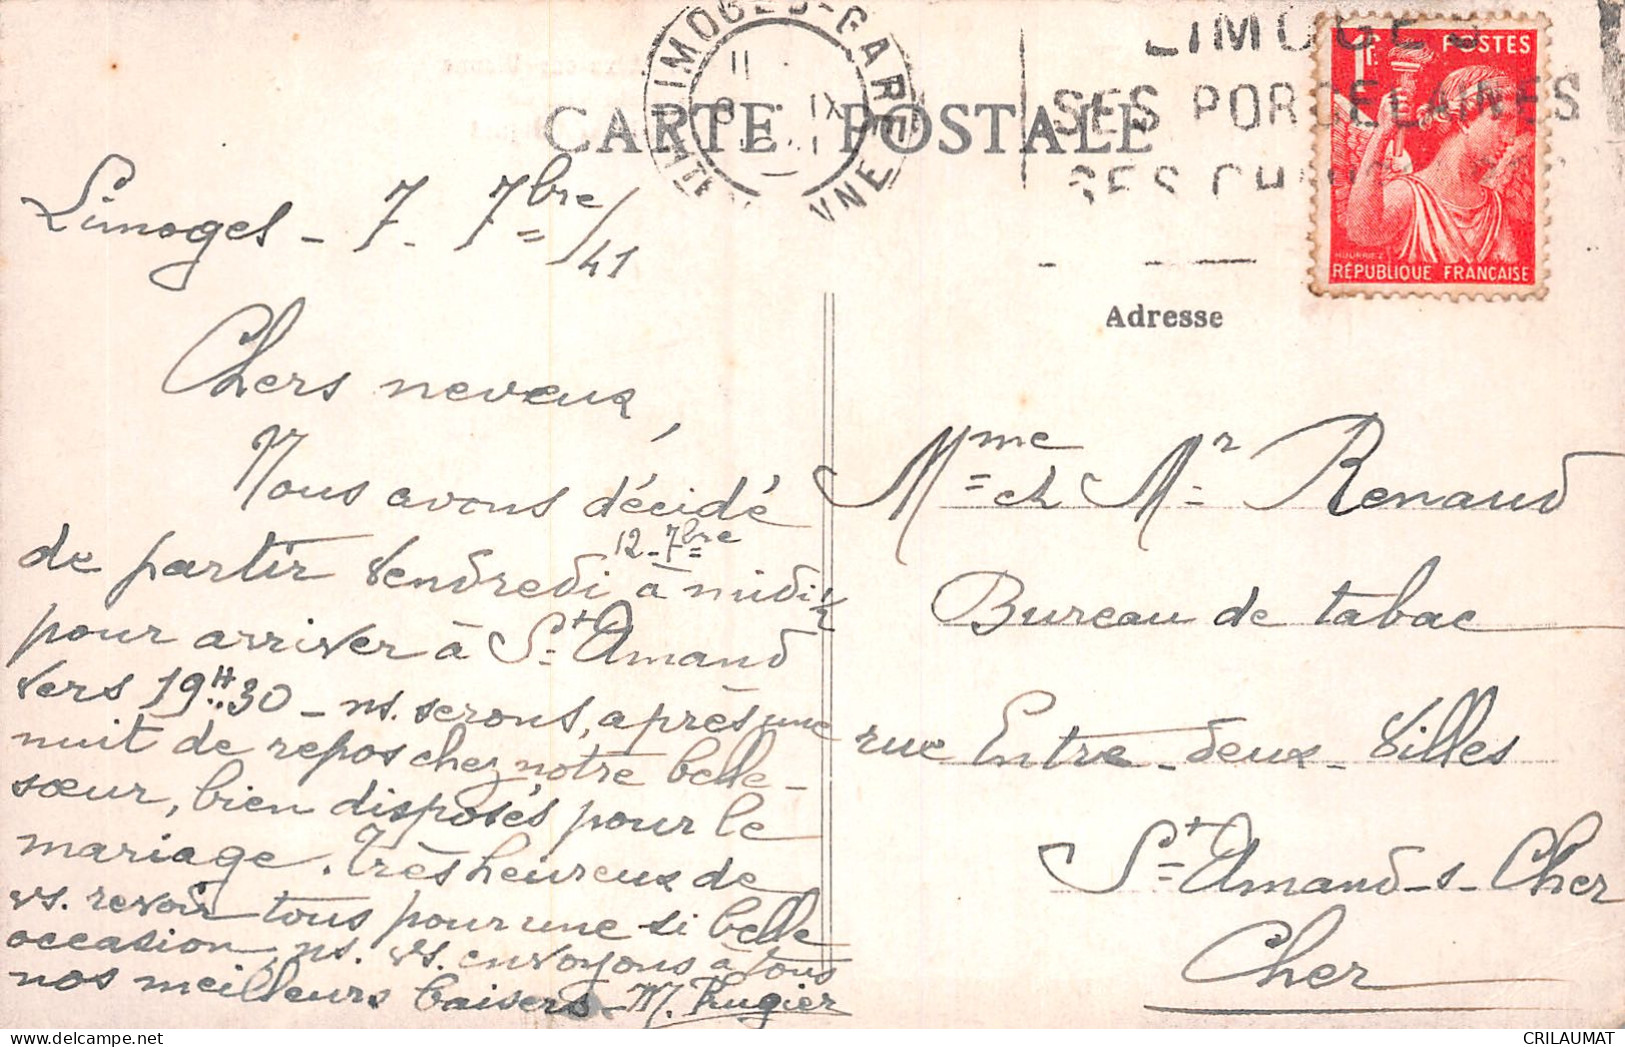 LIMOGES-GARE
11
IX
VIENNE
LIMOGES
SES PORCELAINES
SES
1F. POSTES
RÉPUBLIQUE FRANÇAISE
CARTE POSTALE
Limoges - 7 - 7bre/41
Chers neveux,
Nous avons décidé
12-7bre
de partir Vendredi à midi ½
pour arriver à St Amand
vers 19H30 - ns. serons, après une
nuit de repos chez notre belle-
sœur, bien disposés pour le
mariage. Très heureux de
vs. revoir tous pour une si belle
occasion, ns. vs. envoyons à tous
nos meilleurs baisers - M.
Adresse
Mme et Mr Renaud
Bureau de tabac
rue Entre-deux-Villes
St Amand-s-Cher
Cher
CRILAUMAT